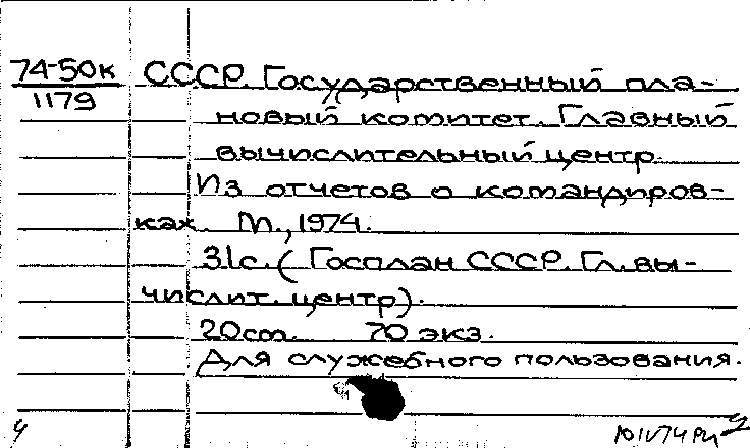 74-50к СССР. Государственный пла-
1179 новый комитет. Главный
вычислительный центр.
Из отчетов о командиров-
ках. М., 1974.
31с. (Госплан СССР. Гл. вы-
числит. центр).
20cm. 70 экз.
Для служебного пользования.
4